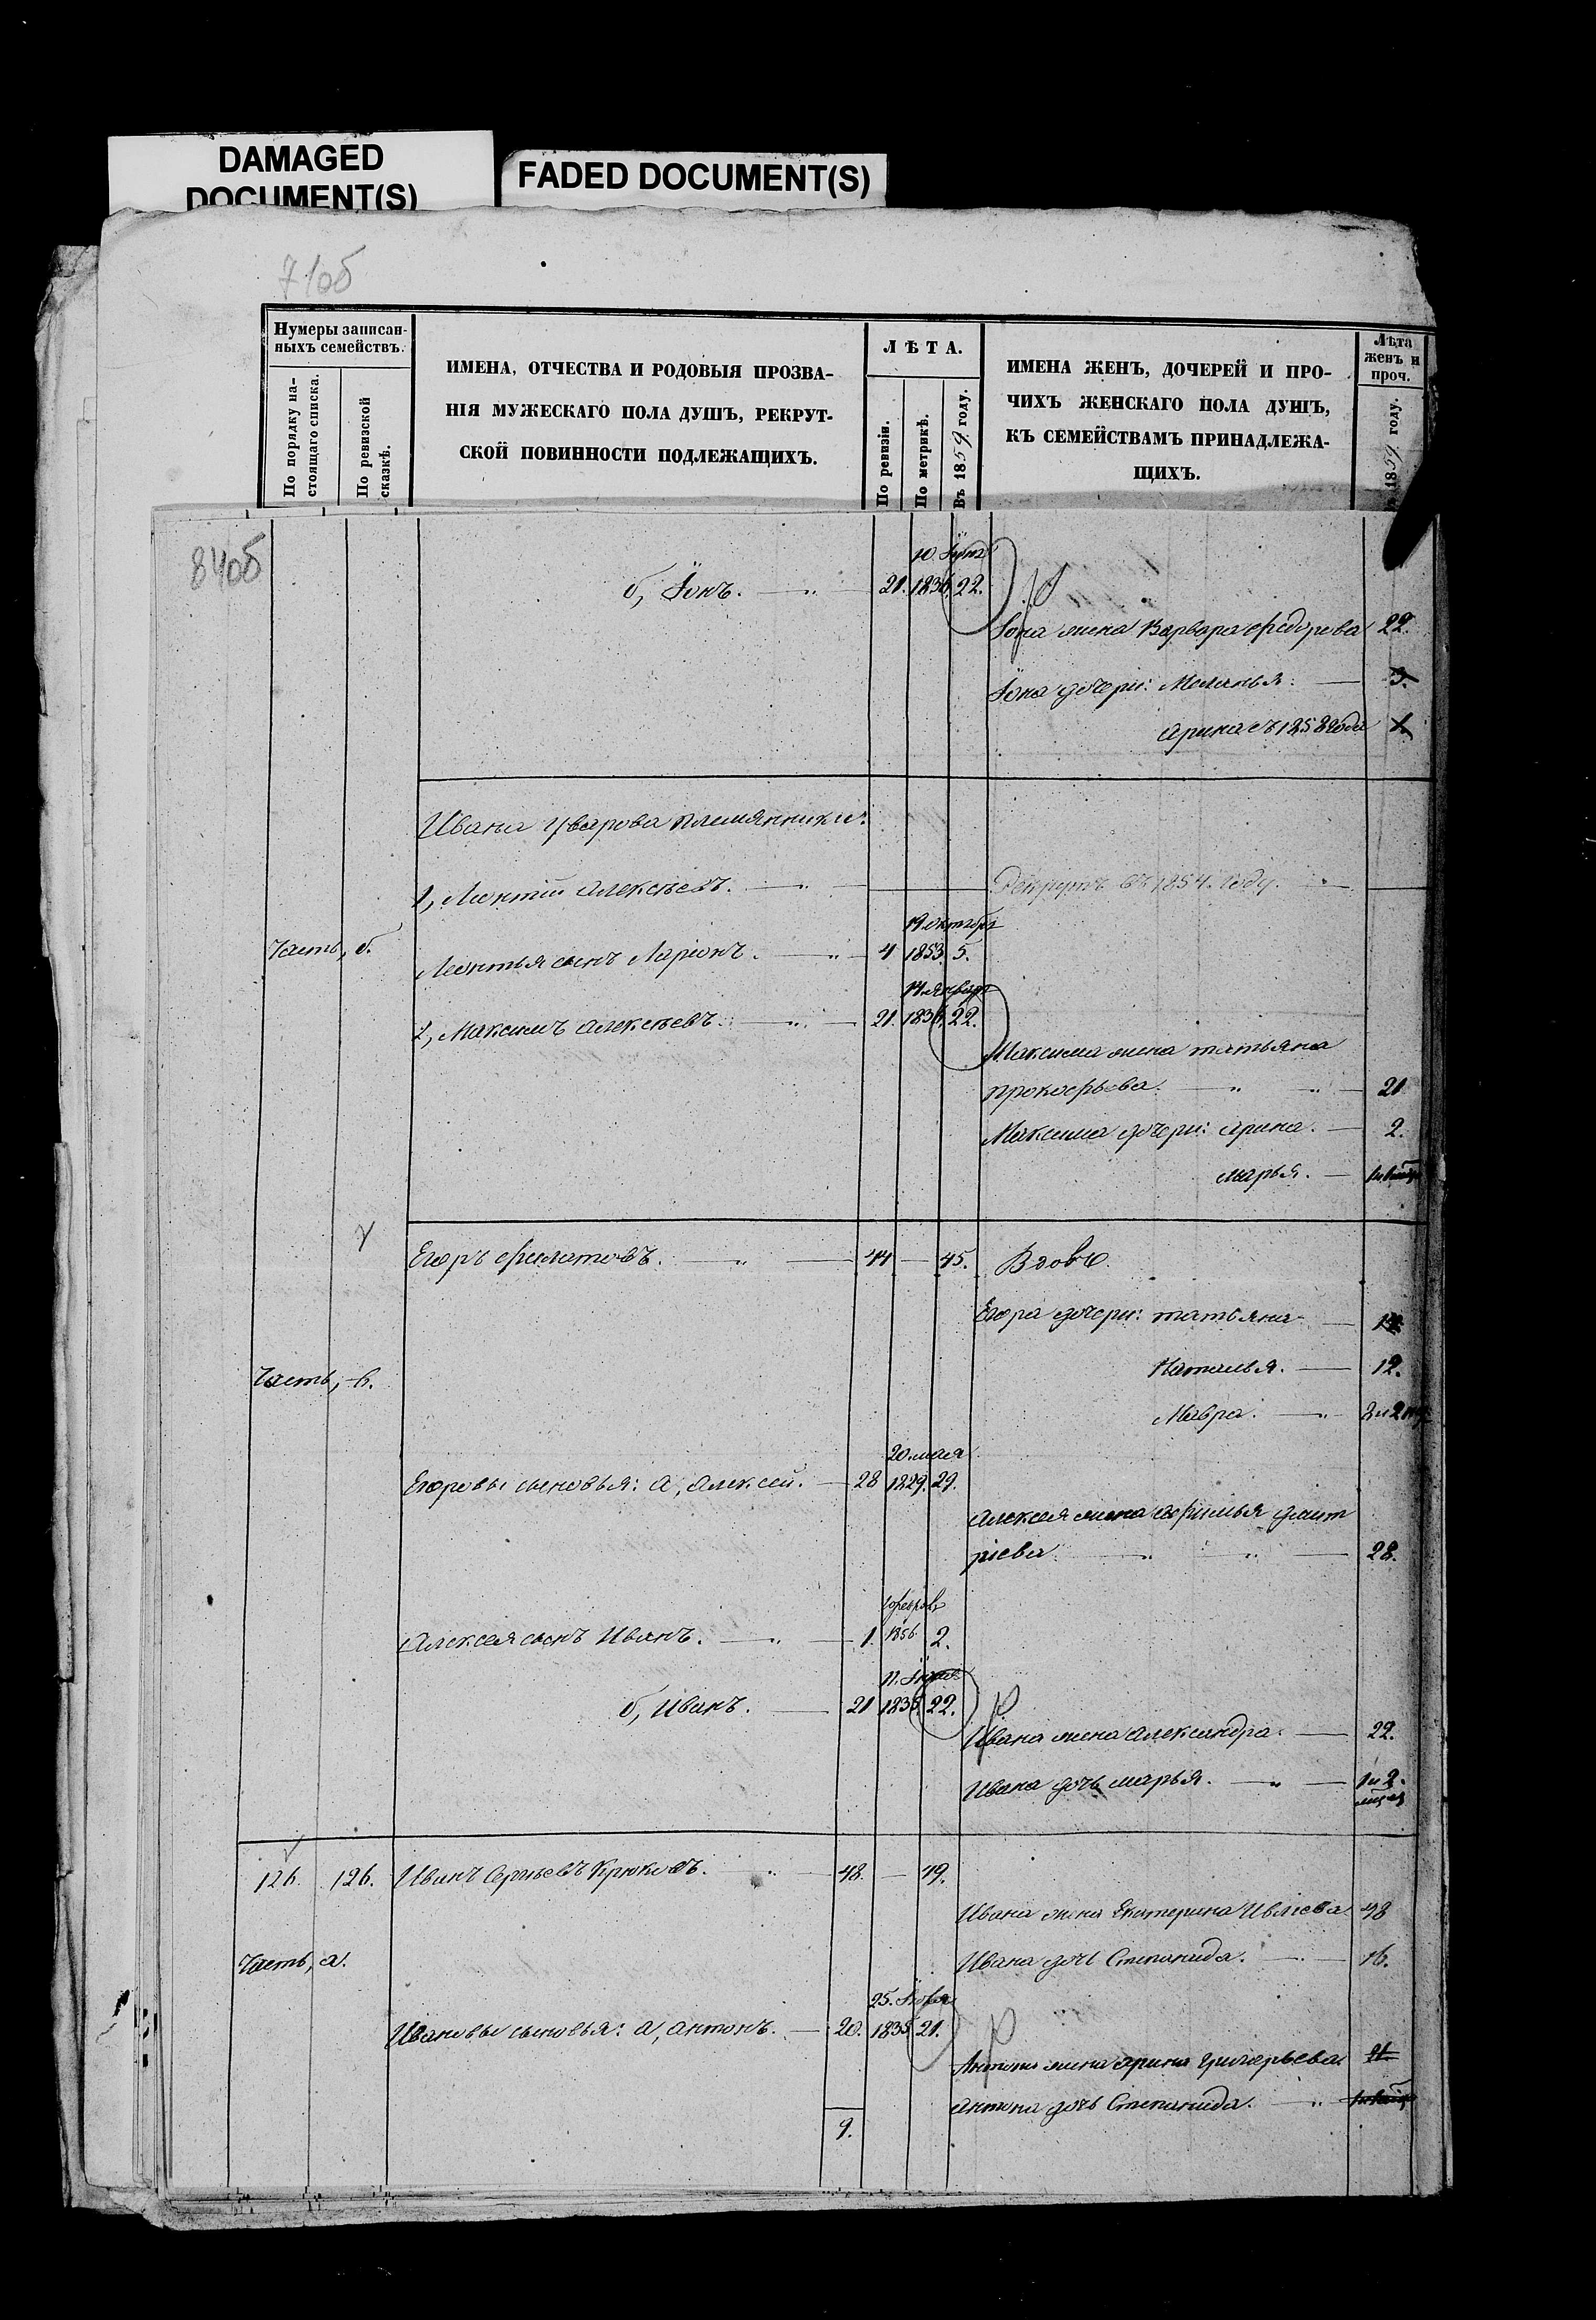 DAMAGED
DOCUMENT(S)
FADED DOCUMENT(S)
71об
Нумеры записан-
ныхъ семействъ.
По порядку на-
стоящаго списка.
По ревизской
сказкѣ.
ИМЕНА, ОТЧЕСТВА И РОДОВЫЯ ПРОЗВА-
НІЯ МУЖЕСКАГО ПОЛА ДУШЪ, РЕКРУТ-
СКОЙ ПОВИННОСТИ ПОДЛЕЖАЩИХЪ.
ЛѢТА.
По ревизіи.
По метрикѣ.
Въ 1859 году.
ИМЕНА ЖЕНЪ, ДОЧЕРЕЙ И ПРО-
ЧИХЪ ЖЕНСКАГО ПОЛА ДУШЪ,
КЪ СЕМЕЙСТВАМЪ ПРИНАДЛЕЖА-
ЩИХЪ.
Лѣта
женъ и
проч.
1859 году.
84об
б, Іонъ. 21. 1836 22.
Іона жена Варвара Федорева 22.
Іона дочери: Меланья. 3.
Арина съ 1858 года
Ивана Уварова племянники:
1, Леонтій Алексѣевъ. Рекрутъ въ 1854. году.
19. октября
Часть, б. Леонтья сынъ Ларіонъ. 4 1853. 5.
14. января
2, Максимъ Алексѣевъ. 21. 1836 22.
Максима жена татьяна
прокофьева. 21
Максима дочери: Арина. 2.
марья.
Егоръ Филатовъ. 44 45. Вдовъ.
Егора дочери: татьяна
Часть, в. Наталья. 12.
Мавра.
20. мая
Егоровы сыновья: а, Алексей. 28 1829. 29.
Алексея жена Афимья дмит
ріева 28.
Алексея сынъ Иванъ. 1. 1856 2.
б, Иванъ. 21 1836 22.
Ивана жена Александра. 22.
Ивана дочь марья. 1 и 2.
126. 126. Иванъ Сергѣевъ Крюковъ. 48. 49.
Ивана жена Екатерина Ивліева 48
Часть, а. Ивана дочь Степанида. 16.
Ивановы сыновья: а, Антонъ. 20. 1835 21.
Антона жена Арина Григорьева. 21
Антона дочь Степанида.
9.